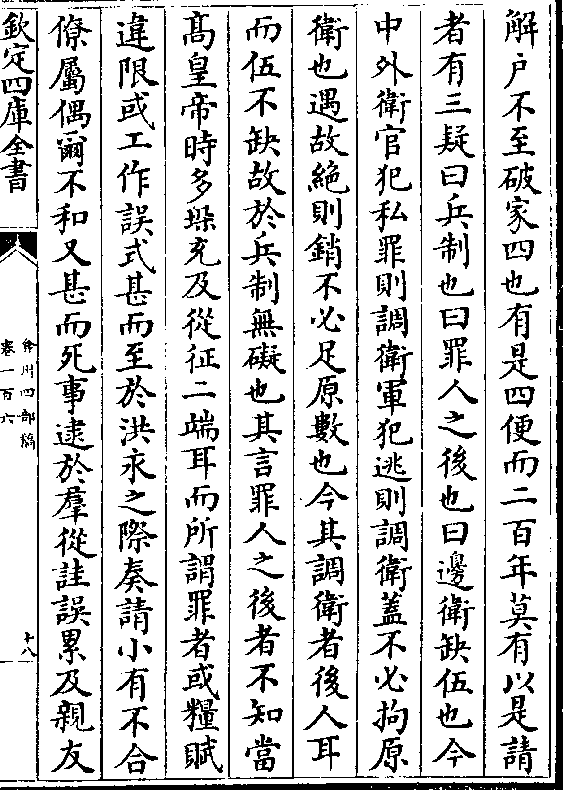 解户不至破家四也有是四便而二百年莫有以是請
者有三疑曰兵制也曰罪人之後也曰邊衛缺伍也今
中外衛官犯私罪則調衛軍犯逃則調衛蓋不必拘原
衛也遇故絶則銷不必足原數也今其調衛者後人耳
而伍不缺故於兵制無礙也其言罪人之後者不知當
髙皇帝時多垜充及從征二端耳而所謂罪者或糧賦
違限或工作誤式甚而至於洪永之際奏請小有不合
僚屬偶爾不和又甚而死事逮於羣從詿誤累及親友
欽定四庫全書
弇州四部稿
卷一百六
十八